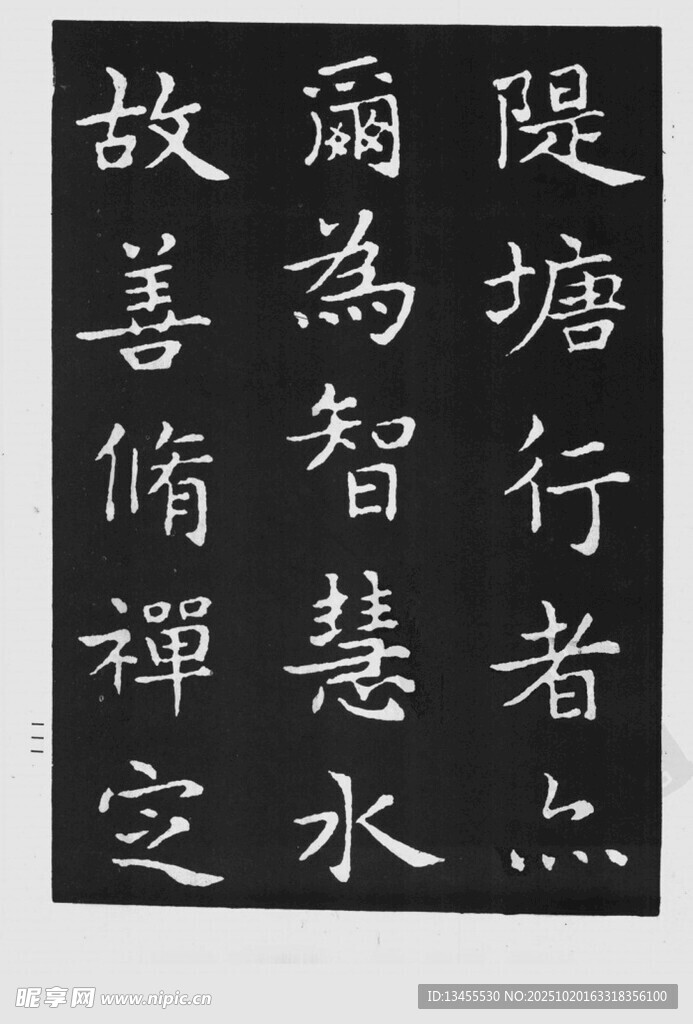 隄塘行者亦
爾為智慧水
故善脩禪定
一一一
昵享网 www.nipic.cn
ID:13455530 NO:20251020163318356100